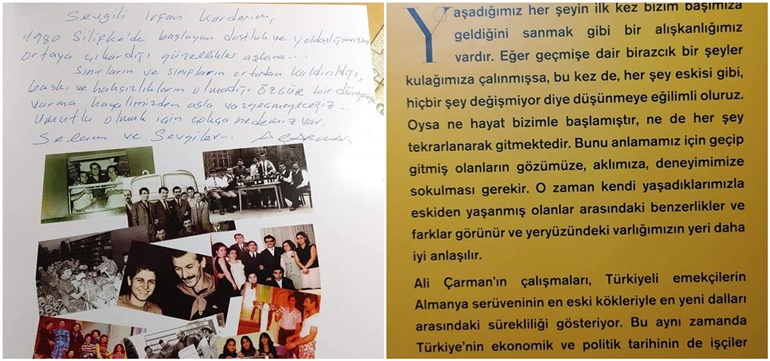 Sevgili İrfan Kardeşim,
1980 Silifke'de başlayan dostluk ve yoldaşlığımızın
ortaya çıkardığı güzellikler aşkına...
Sınırların ve sınıfların ortadan kaldırıldığı,
baskı ve haksızlıkların olmadığı özgür bir dünyaya
varma hayalimizden asla vazgeçmeyeceğiz..
Umutlu olmak için çokça nedenimiz var.
Selam ve Sevgiler..
Yaşadığımız her şeyin ilk kez bizim başımıza
geldiğini sanmak gibi bir alışkanlığımız
vardır. Eğer geçmişe dair birazcık bir şeyler
kulağımıza çalınmışsa, bu kez de, her şey eskisi gibi,
hiçbir şey değişmiyor diye düşünmeye eğilimli oluruz.
Oysa ne hayat bizimle başlamıştır, ne de her şey
tekrarlanarak gitmektedir. Bunu anlamamız için geçip
gitmiş olanların gözümüze, aklımıza, deneyimimize
sokulması gerekir. O zaman kendi yaşadıklarımızla
eskiden yaşanmış olanlar arasındaki benzerlikler ve
farklar görünür ve yeryüzündeki varlığımızın yeri daha
iyi anlaşılır.
Ali Çarman'ın çalışmaları, Türkiyeli emekçilerin
Almanya serüveninin en eski kökleriyle en yeni dalları
arasındaki sürekliliği gösteriyor. Bu aynı zamanda
Türkiye'nin ekonomik ve politik tarihinin de işçiler